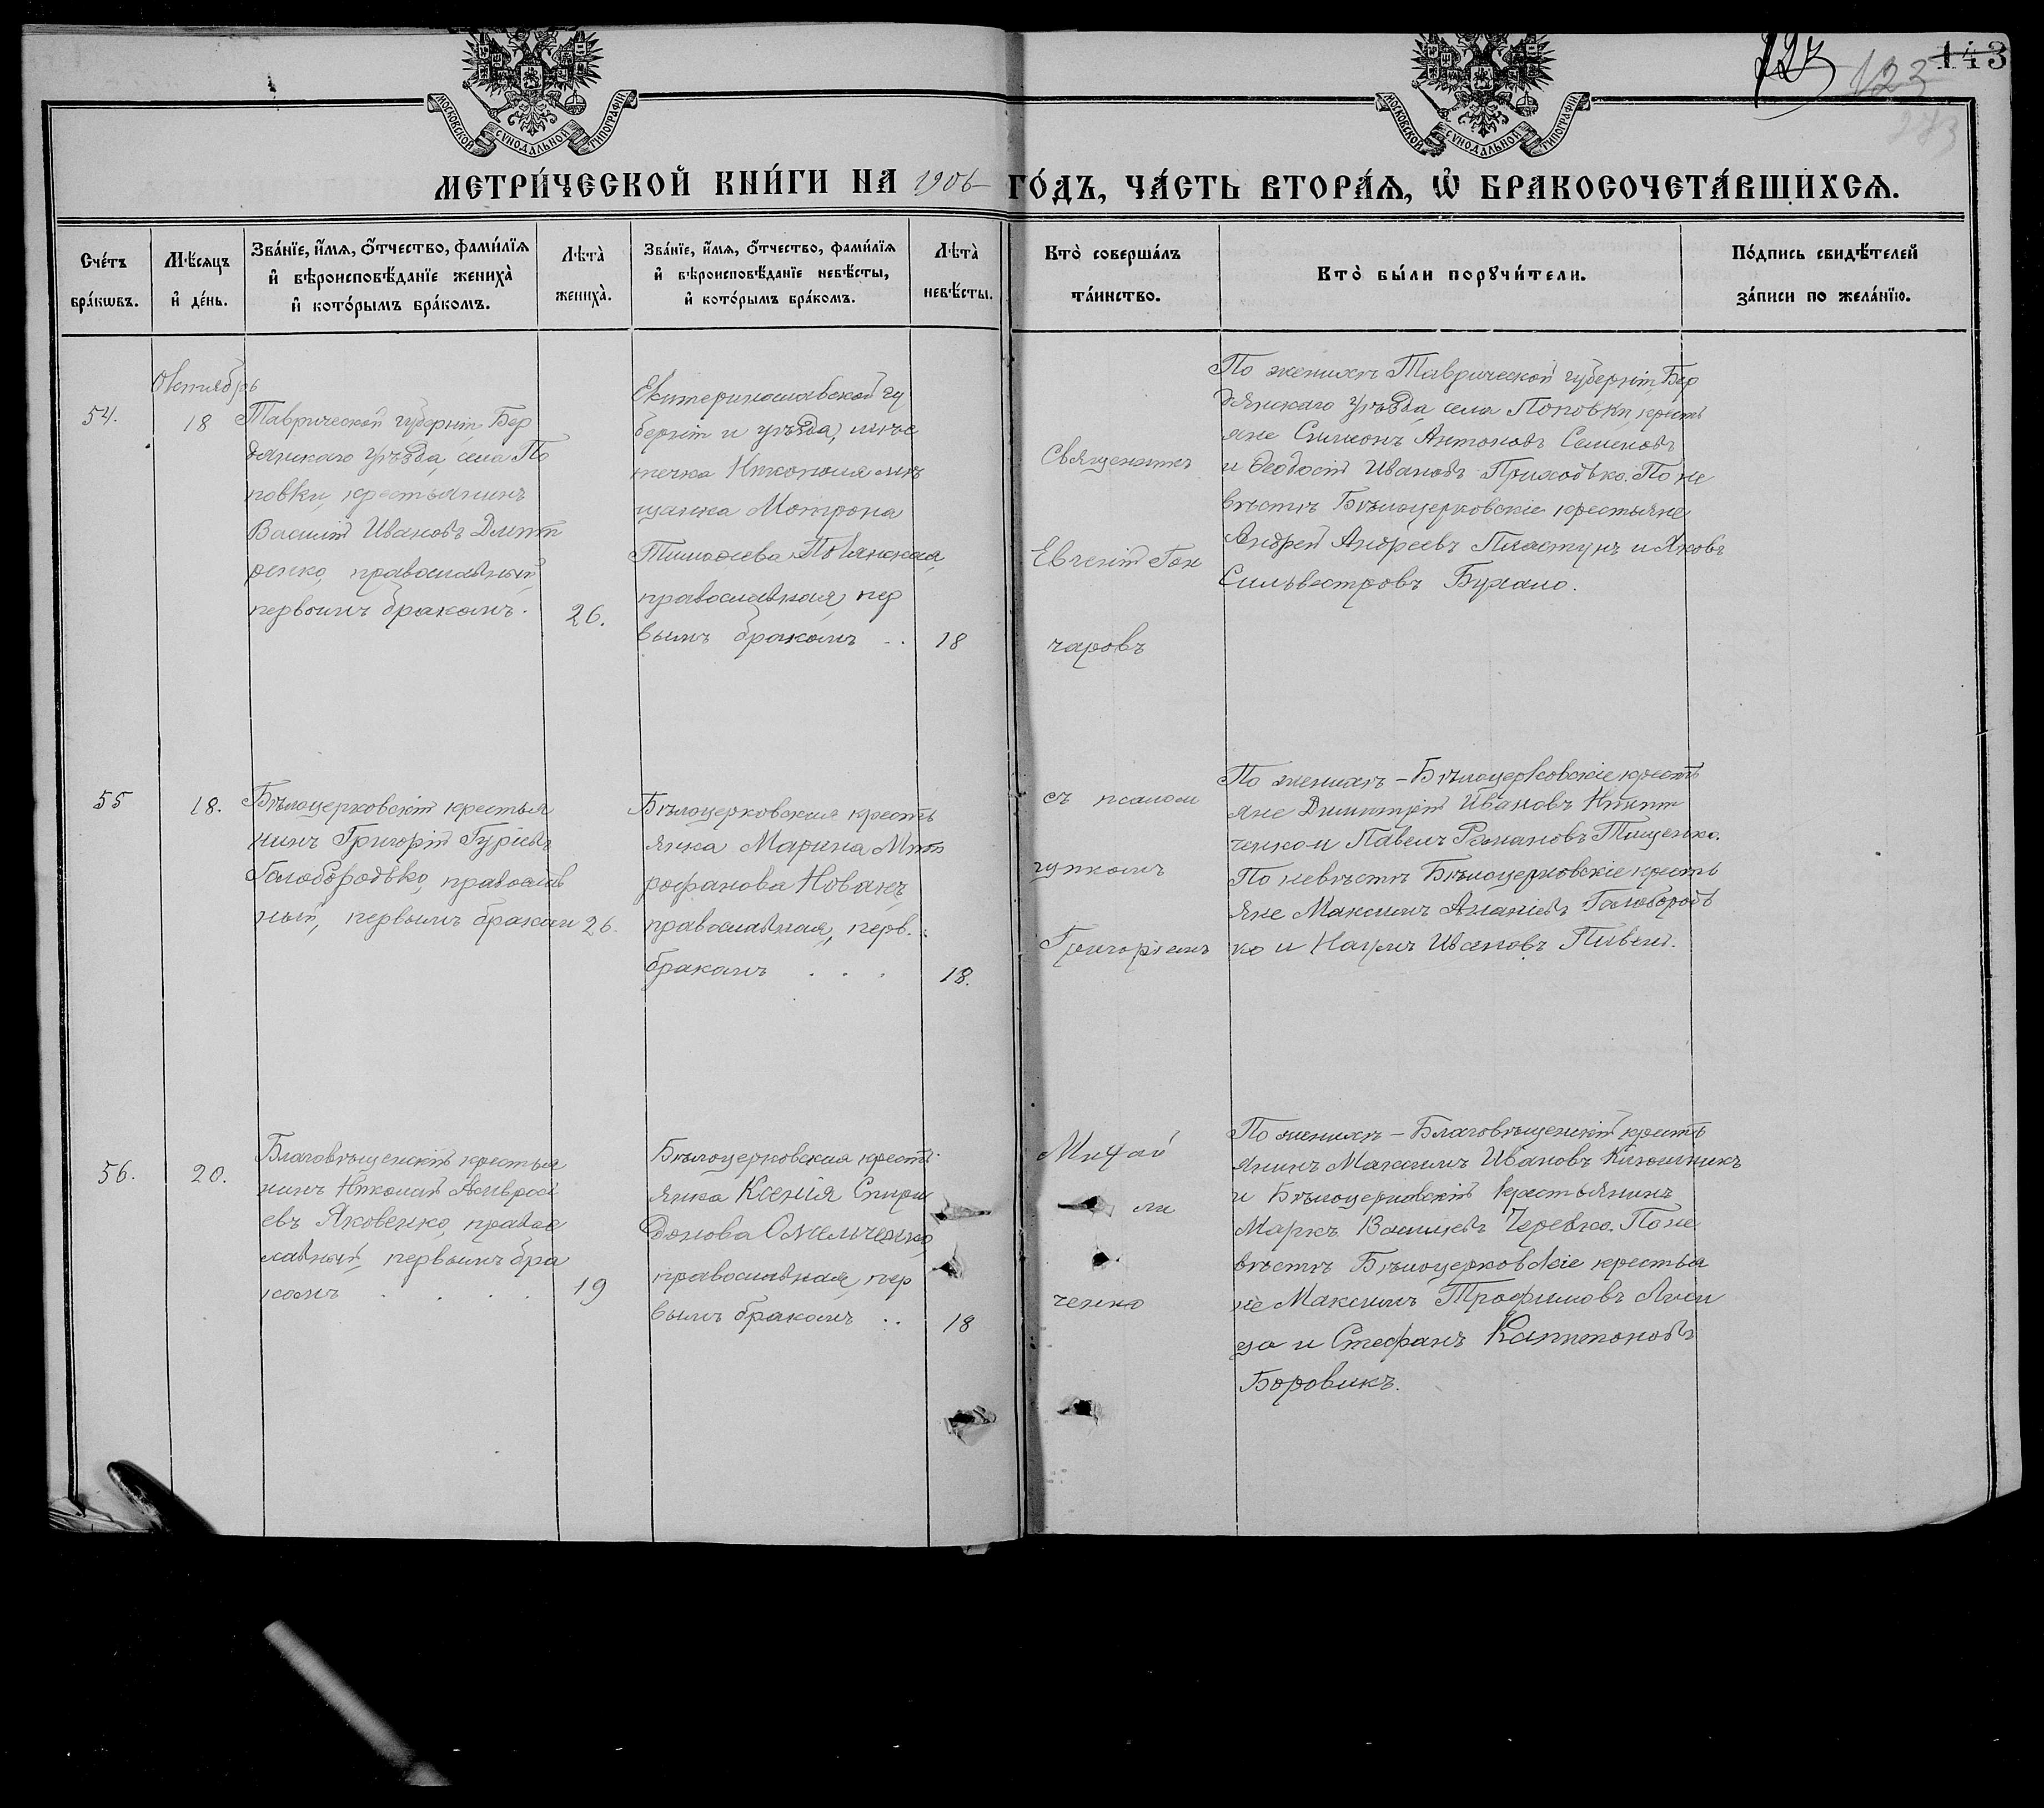 МОСКОВСКОЙ СУНОДАЛЬНОЙ ТИПОГРАФІИ
МОСКОВСКОЙ СУНОДАЛЬНОЙ ТИПОГРАФІИ
123 123 143
МЕТРИ́ЧЕСКОЙ КНИ́ГИ НА 1906 ГО́ДЪ, ЧА́СТЬ ВТОРА́Ѧ, Ѡ҆ БРАКОСОЧЕТА́ВШИХСѦ.
Сче́тъ
бра́кѡвъ.
Мѣ́сяцъ
и҆ де́нь.
Зва́нїе, и҆́мѧ, ѻ҆́тчество, фами́лїѧ
и҆ вѣроисповѣ́данїе жениха̀
и҆ кото́рымъ бра́комъ.
Лѣта̀
жениха̀.
Зва́нїе, и҆́мѧ, ѻ҆́тчество, фами́лїѧ
и҆ вѣроисповѣ́данїе невѣ́сты,
и҆ кото́рымъ бра́комъ.
Лѣта̀
невѣ́сты.
Кто̀ соверша́лъ
та́инство.
Кто̀ бы́ли порꙋчи́тели.
По́дпись свидѣ́телей
за́писи по жела́нїю.
54.
Октябрь
18
Таврической губерніи, Бер
дянскаго уѣзда, села По
повки, крестьянинъ
Василій Ивановъ Дмит
ренко, православный,
первымъ бракомъ.
26.
Екатеринославской гу
берніи и уѣзда, мѣс
течка Никополя мѣ
щанка Мотрона
Тимофеева Полянская,
православная, пер
вымъ бракомъ ..
18
Священникъ
Евгеній Гон
чаровъ
По женихѣ Таврической губерніи, Бер
дянскаго уѣзда, села Поповки, кресть
яне Симеонъ Антоновъ Семеновъ
и Феодосій Ивановъ Приходько. По не
вѣстѣ Бѣлоцерковскіе крестьяне
Андрей Андреевъ Пластунъ и Яковъ
Сильвестровъ Бухало.
55
18.
Бѣлоцерковскій крестья
нинъ Григорій Гуріевъ
Голобородько, православ
ный, первымъ бракомъ
26.
Бѣлоцерковская кресть
янка Марина Мит
рофанова Новакъ,
православная, перв.
бракомъ . . .
18.
съ псалом
щикомъ
Григоріемъ
По женихѣ – Бѣлоцерковскіе кресть
яне Димитрій Ивановъ Никит
ченко и Павелъ Романовъ Тищенко.
По невѣстѣ Бѣлоцерковскіе кресть
яне Максимъ Ананіевъ Голобородь
ко и Наумъ Ивановъ Пивень.
56.
20.
Благовѣщенскій крестья
нинъ Николай Амвросі
евъ Яковенко, правос
лавный, первымъ бра
комъ . . . .
19
Бѣлоцерковская кресть
янка Ксенія Спири
донова Омельченко,
православная, пер
вымъ бракомъ ..
18
Михай
ли
ченко
По женихѣ – Благовѣщенскій кресть
янинъ Максимъ Ивановъ Ключникъ
и Бѣлоцерковскій крестьянинъ
Маркъ Васильевъ Черевко. По не
вѣстѣ Бѣлоцерковскіе крестья
не Максимъ Трофимовъ Лиси
ца и Стефанъ Капитоновъ
Боровикъ.